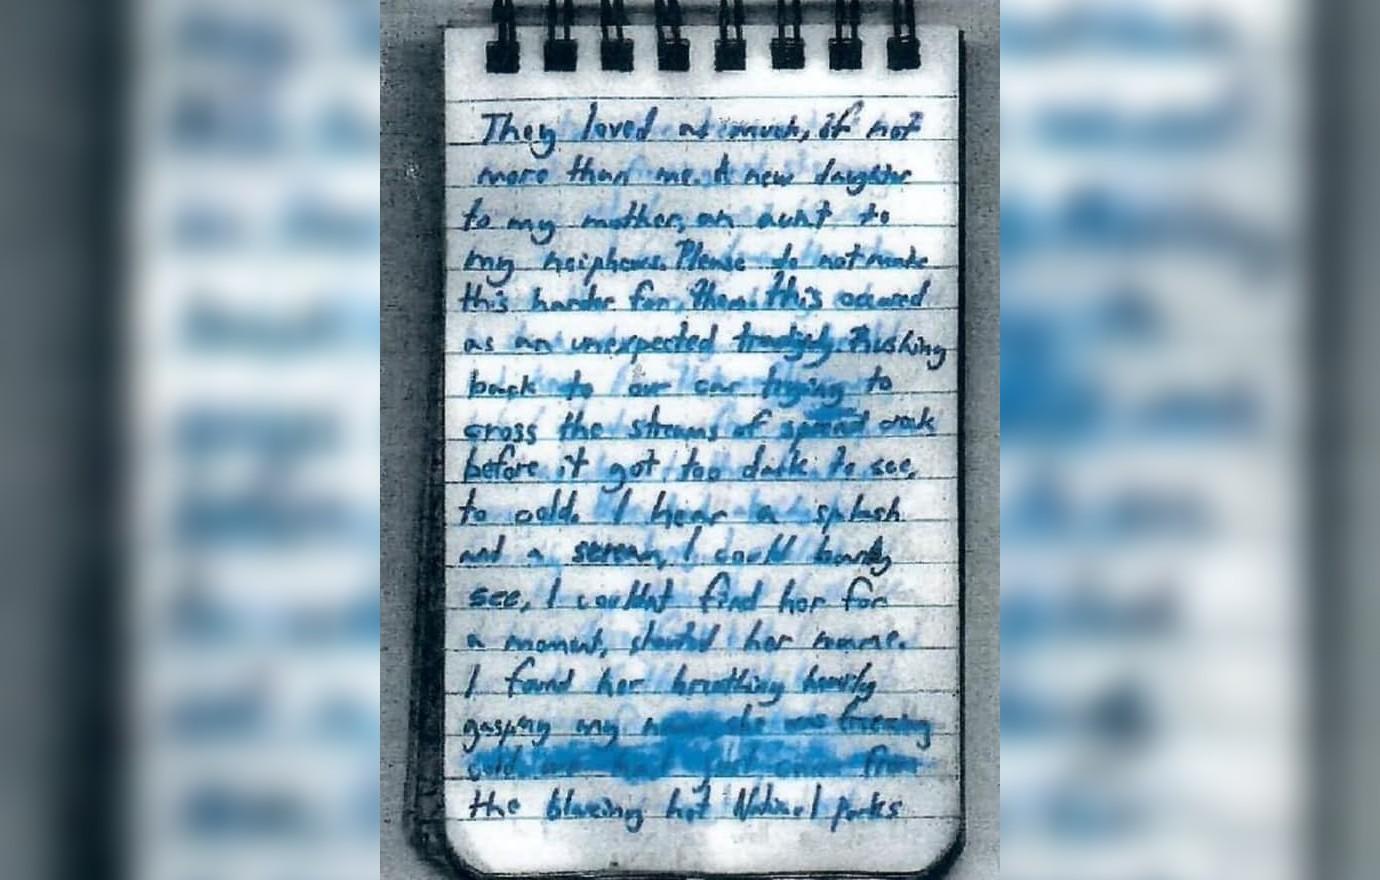 They loved as much, if not
more than me. A new daughter
to my mother, an aunt to
my neiphews. Please do not make
this harder for them. this occured
as an unexpected tradgedy. Rushing
back to our car trying to
cross the streams of spread creek
before it got too dark to see,
to cold. I hear a splash
and a scream, I could barely
see, I couldnt find her for
a moment, shouted her name.
I found her breathing heavily
gasping my name she was freezing
cold we had just come from
the blazing hot National parks